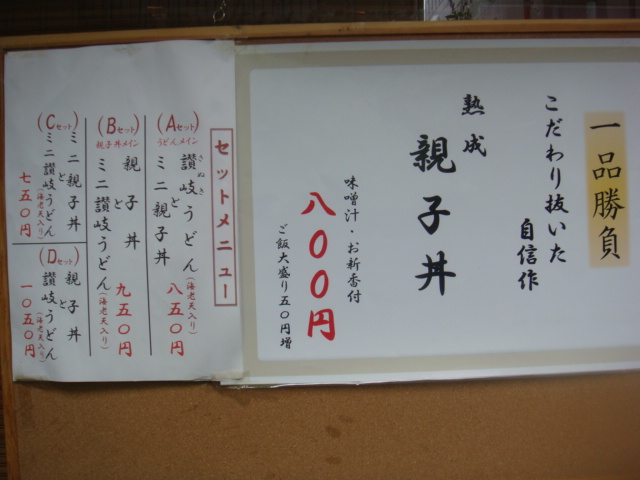 一品勝負
こだわり抜いた
自信作
熟成
親子丼
味噌汁・お新香付
八〇〇円
ご飯大盛り五〇円増
セットメニュー
(Aセット)
うどんメイン
さぬき
讃岐うどん(海老天入り)
と
ミニ親子丼
八五〇円
(Bセット)
親子丼メイン
親子丼
と
ミニ讃岐うどん(海老天入り)
九五〇円
(Cセット)
ミニ親子丼
と
ミニ讃岐うどん(海老天入り)
七五〇円
(Dセット)
親子丼
と
讃岐うどん(海老天入り)
一〇五〇円